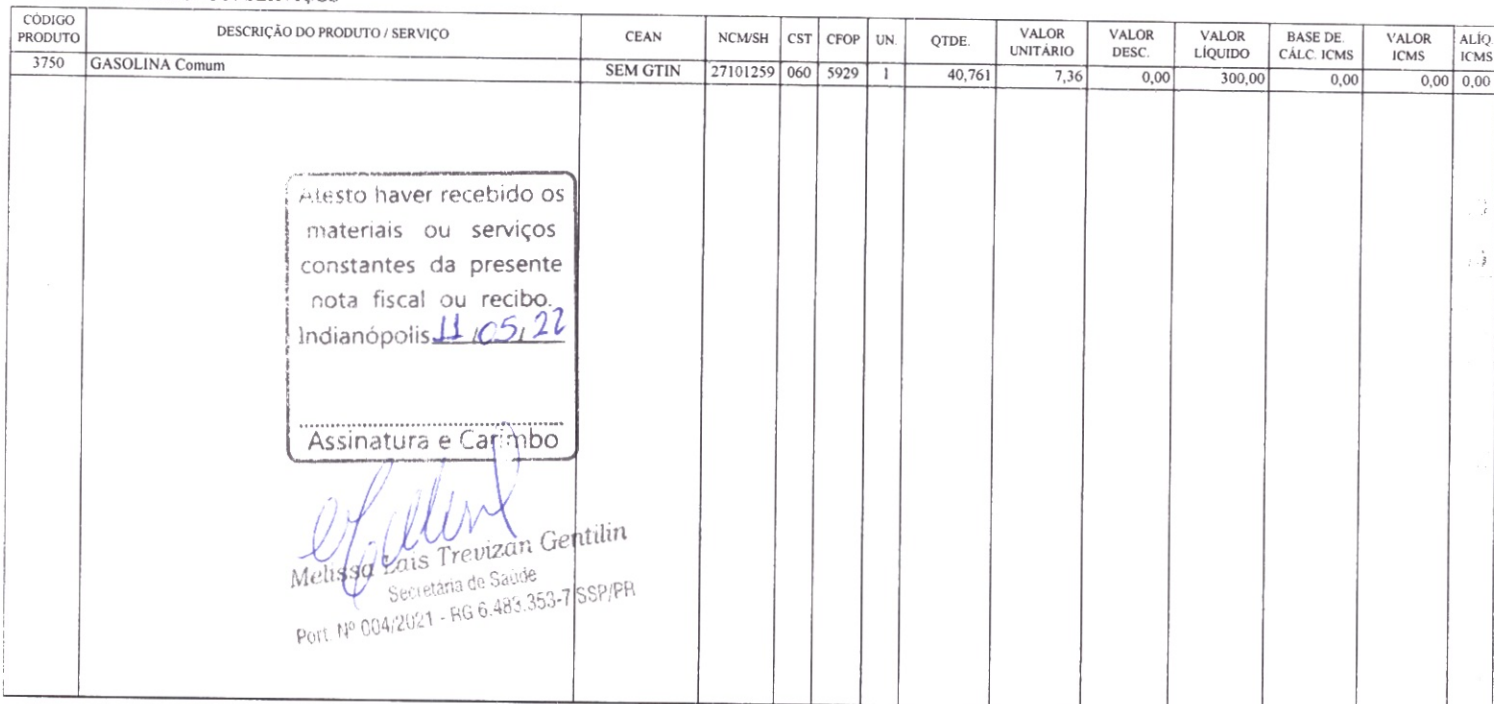 CÓDIGO PRODUTO DESCRIÇÃO DO PRODUTO / SERVIÇO CEAN NCM/SH CST CFOP UN. QTDE. VALOR UNITÁRIO VALOR DESC. VALOR LÍQUIDO BASE DE CÁLC. ICMS VALOR ICMS ALÍQ. ICMS
3750 GASOLINA Comum SEM GTIN 27101259 060 5929 1 40,761 7,36 0,00 300,00 0,00 0,00 0,00
Atesto haver recebido os
materiais ou serviços
constantes da presente
nota fiscal ou recibo.
Indianópolis 11/05/22
Assinatura e Carimbo
Melissa Lais Trevizan Gentilin
Secretária de Saúde
Port. Nº 004/2021 - RG 6.483.353-7 SSP/PR